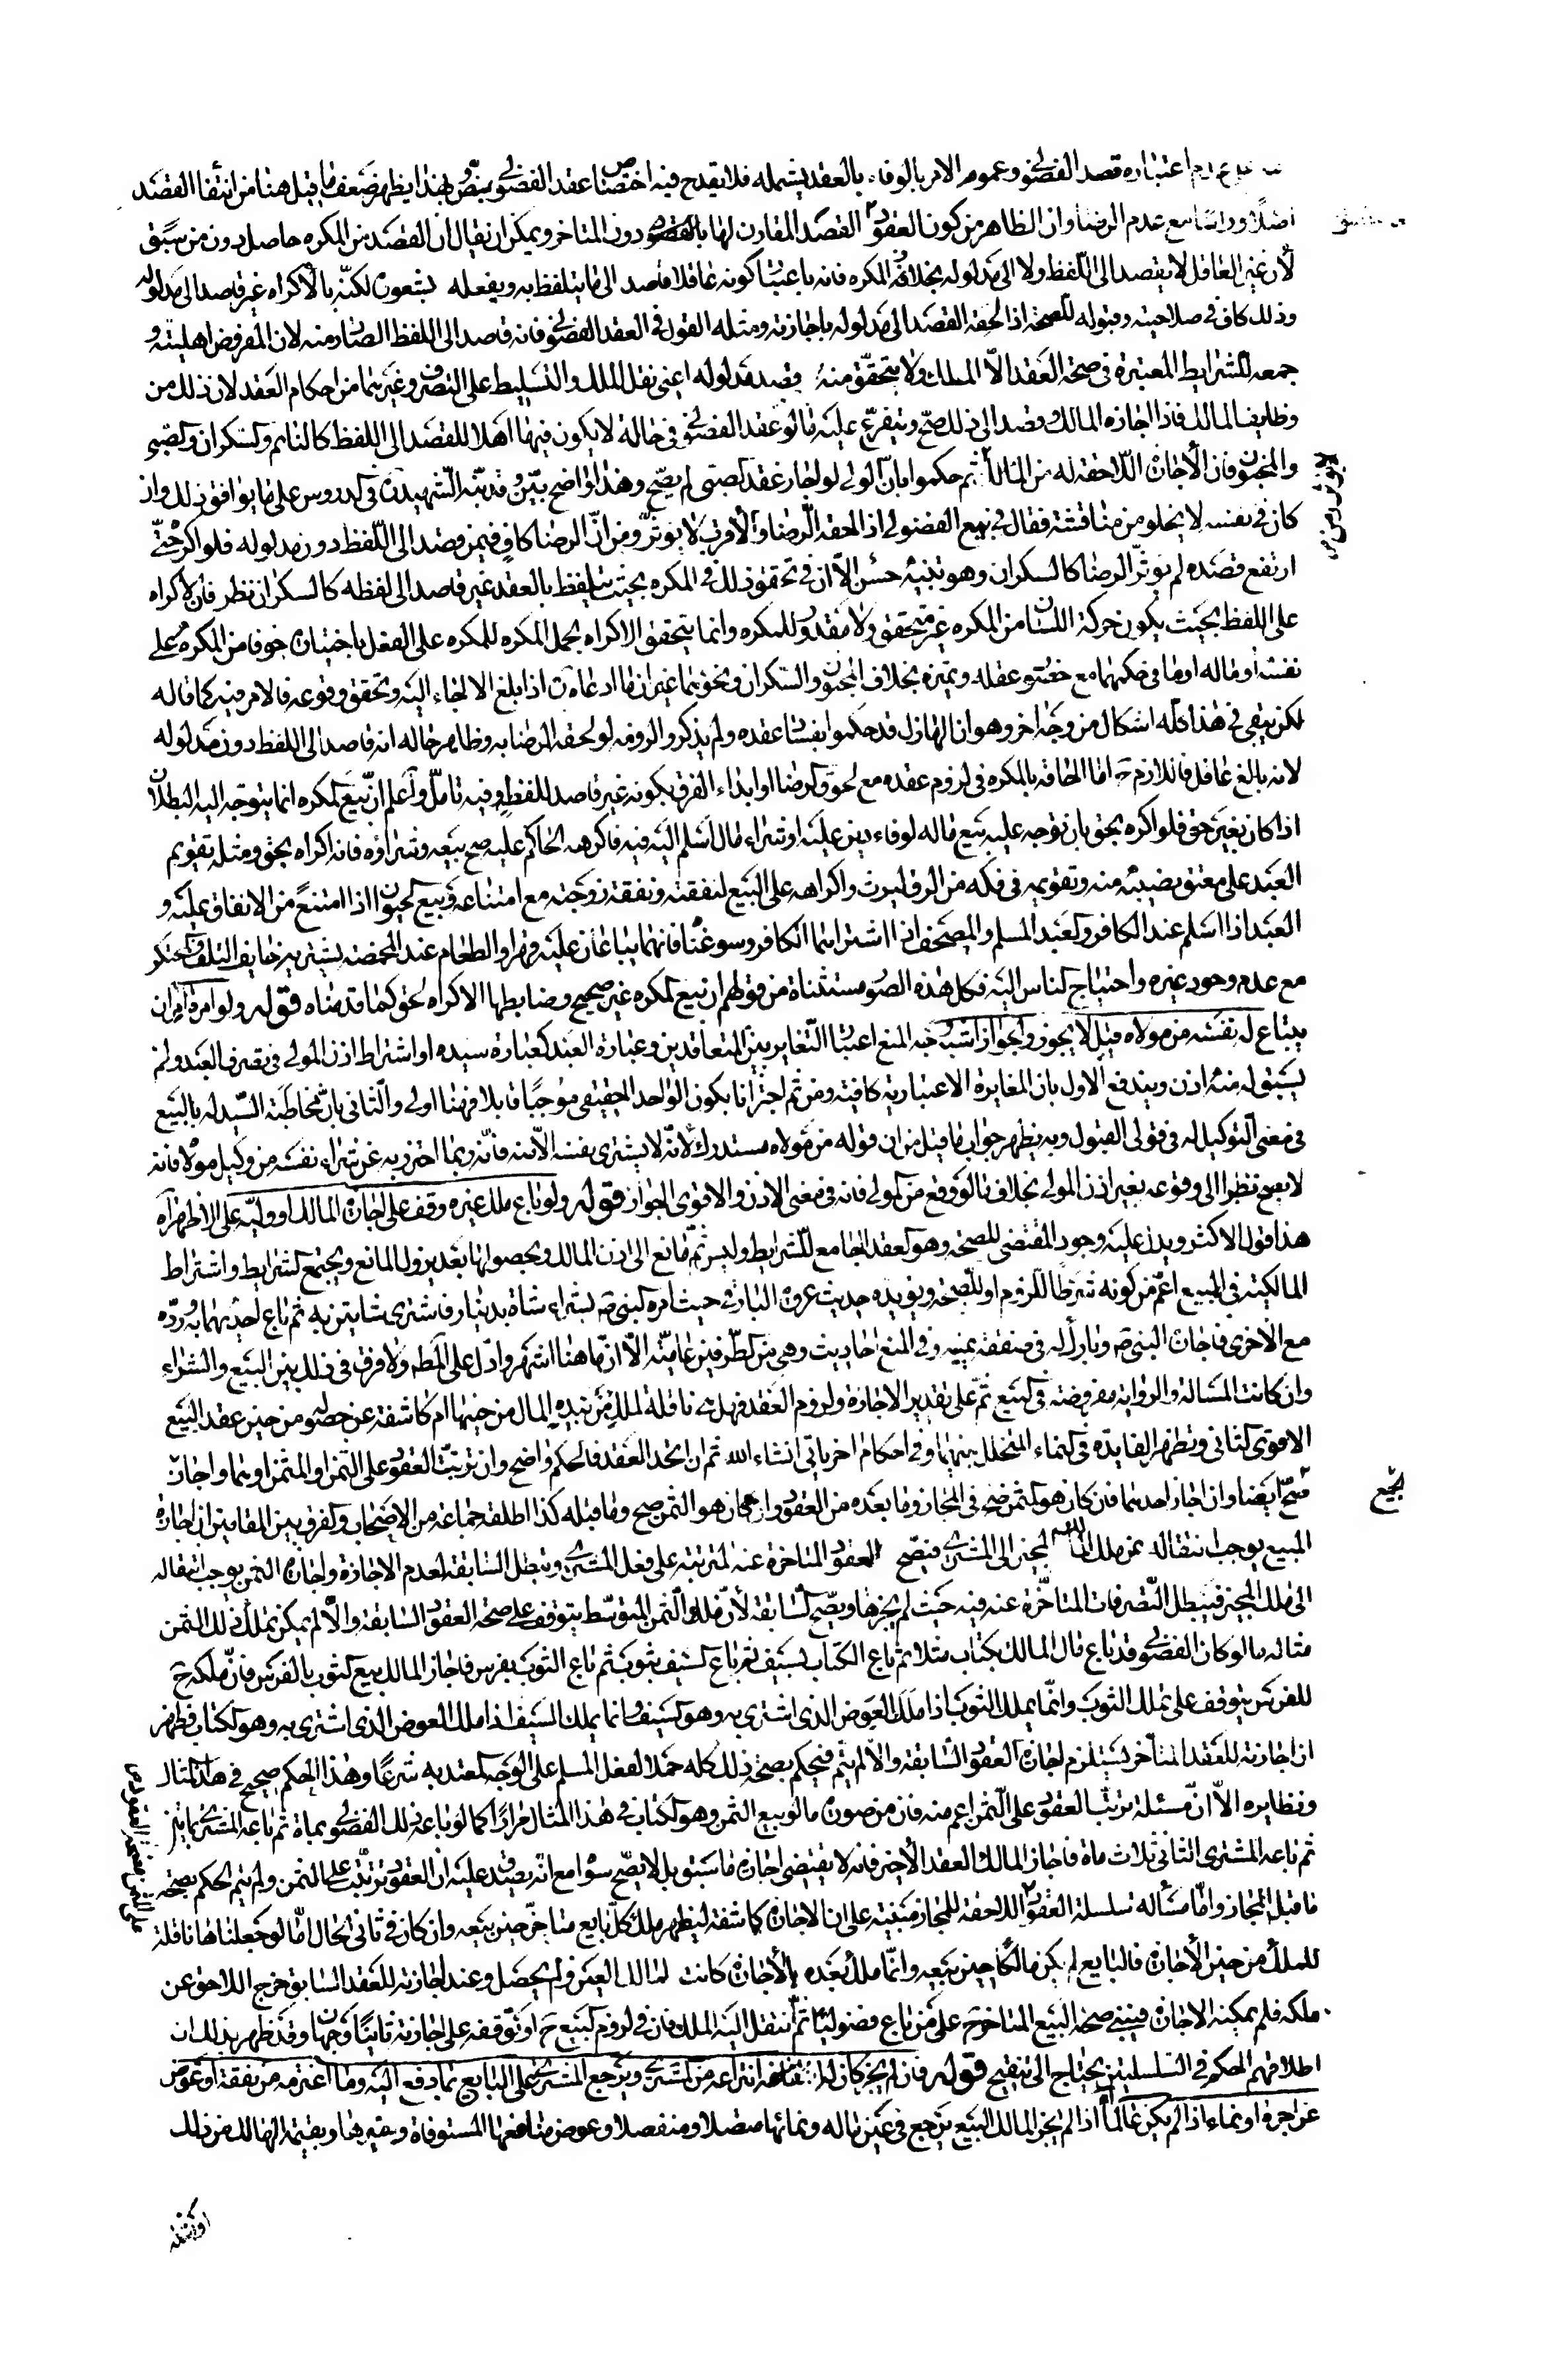 اعتباره قصد الفضولي وعموم الامر بالوفاء بالعقد يشمله فلا يقدح فيه اختصاص عقد الفضولي بنص وبهذا يظهر ضعف ما قيل هنا من انتفاء القصد
اصلا وراسا مع عدم الرضا وان الظاهر من كون العقود القصد المقارن لها بالقصود دون المتاخر ويمكن ان يقال ان القصد من المكره حاصل دون من سبق
لأن غير العاقل لا يقصد الى اللفظ ولا الى مدلوله بخلاف المكره فانه باعتبار كونه عاقلا قاصد الى ما يتلفظ به ويفعله بشعور لكنه بالاكراه غير قاصد الى مدلوله
وذلك كاف في صلاحيته وقبوله للصحة اذا لحقه القصد الى مدلوله باجازته ومثله القول في العقد الفضولي فانه قاصد الى اللفظ الصادر منه لان المفروض اهليته و
جمعه للشرايط المعتبرة في صحة العقد الا الملك ولا يتحقق منه قصد مدلوله اعني نقل الملك والتسليط على التصرف وغيرهما من احكام العقد لان ذلك من
وظايف المالك فاذا اجازه المالك وقصد الى ذلك صح ويتفرع عليه ما لو عقد الفضولي في حالة لا يكون فيها اهلا للقصد الى اللفظ كالنائم والسكران والصبي
والمجنون فان الاجازة اللاحقة له من المالك ثم حكموا بان الولي لو اجاز عقد الصبي لم يصح وهذا واضح بين وقد نبه الشهيد في الدروس على ما يوافق ذلك وان
كان في نفسه لا يخلو من مناقشة فقال في بيع الفضولي اذا لحقه الرضا والاقرب لا يوثر ومن ان الرضا كاف فيمن قصد الى اللفظ دون مدلوله فلو اكره حتى
ارتفع قصده لم يوثر الرضا كالسكران وهو تنبيه حسن الا ان في تحقق ذلك في المكره بحيث يتلفظ بالعقد غير قاصد الى لفظه كالسكران نظر فان الاكراه
على اللفظ بحيث يكون حركة اللسان من المكره غير متحقق ولا مقدور للمكره وانما يتحقق الاكراه بحمل المكره للمكره على الفعل باختياره خوفا من المكره على
نفسه او ماله او ما في حكمهما مع حضور عقله وتميزه بخلاف المجنون والسكران ونحوهما غير ان ما ادعاه اذا بلغ الالجاء اليه وتحقق وقوعه فالامر فيه كما قاله
لكن يبقى في هذا كله اشكال من وجه اخر وهو ان الهازل قد حكموا بفساد عقده ولم يذكروا لزومه لو لحقه الرضا به وظاهر حاله انه قاصد الى اللفظ دون مدلوله
لانه بالغ عاقل فاللازم ح اما الحاقه بالمكره في لزوم عقده مع لحوق الرضا او ابداء الفرق بكونه غير قاصد للفظ وفيه تأمل واعلم ان بيع المكره انما يتوجه اليه البطلان
اذا كان بغير حق فلو اكره بحق بان توجه عليه بيع ماله لوفاء دين عليه او شراء مال اسلم اليه فيه فاكرهه الحاكم عليه صح بيعه وشراؤه فانه اكراه بحق ومثله تقويم
العبد على معتق نصيبه منه وتقويمه في فكه من الرق ليرث واكراهه على البيع لنفقته ونفقة زوجته مع امتناعه وبيع الحيوان اذا امتنع من الانفاق عليه و
العبد اذا اسلم عند الكافر والعبد المسلم والمصحف اذا اشتراهما الكافر وسوغنا فانهما يباعان عليه قهرا والطعام عند المخمصة يشتريه خايف التلف والمحتكر
مع عدم وجود غيره واحتياج الناس اليه فكل هذه الصور مستثناة من قولهم ان بيع المكره غير صحيح وضابطها الاكراه بحق كما قدمناه قوله ولو امره آمر ان
يبتاع له نفسه من مولاه قيل لا يجوز والجواز اشبه وجه المنع اعتبار التغاير بين المتعاقدين وعبارة العبد كعبارة سيده او اشتراط اذن المولى في تصرف العبد ولم
يسبق له منه اذن ويندفع الاول بان المغايرة الاعتبارية كافية ومن ثم اجتزانا بكون الواحد الحقيقي موجبا قابلا فهنا اولى والثاني بان مخاطبة السيد له بالبيع
في معنى التوكيل له في تولى القبول وبه يظهر جواب ما قيل من ان قوله من مولاه مستدرك لانه لا يشترى نفسه الا منه فانه ربما احترز به عن شراء نفسه من وكيل مولاه فانه
لا يصح نظرا الى وقوعه بغير اذن المولى بخلاف ما لو وقع من المولى فانه في معنى الاذن والاقوى الجواز قوله ولو باع ملك غيره وقف على اجازة المالك او وليه على الاظهر آه
هذا قول الاكثر ويدل عليه وجود المقتضى للصحة وهو العقد الجامع للشرايط وليس ثم مانع الى اذن المالك وبحصولها بعد يزول المانع ويجتمع الشرايط واشتراط
المالكية في المبيع اعم من كونه شرطا للزوم او للصحة ويؤيده حديث عروة البارقي حيث امره النبي ص بشراء شاة بدينار فاشترى شاتين به ثم باع احديهما به ورده
مع الاخرى فاجازه النبي ص وبارك له في صفقة يمينه وفي المنع احاديث وهي من الطرفين عامية الا انها هنا اشهر وادل على المط ولا فرق في ذلك بين البيع والشراء
وان كانت المسالة والرواية مفروضة في البيع ثم على تقدير الاجازة ولزوم العقد فهل هي ناقلة للملك من بيده المال من حينها ام كاشفة عن حصوله من حين عقد البيع
الاقوى الثاني وتظهر الفايدة في النماء المتخلل بينهما وفي احكام اخر ياتي انشاء الله ثم ان اتحد العقد فالحكم واضح وان ترتب العقود على الثمن او المثمن او هما واجاز
صح ايضا وان اجاز احدهما فان كان هو المثمن صح في المجاز وما بعده من العقود وان كان هو الثمن صح وما قبله كذا اطلقه جماعة من الاصحاب والفرق بين المقامين ان اجازة
المبيع يوجب انتقاله عن ملك المالك المجيز الى المشترى فتصح العقود المتاخرة عنه المترتبة على فعل المشترى وتبطل السابقة لعدم الاجازة واجازة الثمن يوجب انتقاله
الى ملك المجيز فيبطل التصرفات المتاخرة عنه فيه حيث لم يجزها ويصح السابقة لأن ملك الثمن المتوسط يتوقف على صحة العقود السابقة والا لم يمكن تملك ذلك الثمن
مثاله ما لو كان الفضولي قد باع مال المالك بكتاب مثلا ثم باع الكتاب بسيف ثم باع السيف بثوب ثم باع الثوب بفرس فاجاز المالك بيع الثوب بالفرس فان ملكه ح
للفرس يتوقف على تملك الثوب وانما يملك الثوب اذا ملك العوض الذى اشترى به وهو السيف وانما يملك السيف اذا ملك العوض الذى اشترى به وهو الكتاب فظهر
ان اجازته للعقد المتأخر يستلزم اجازة العقود السابقة والا لم يتم فيحكم بصحة ذلك كله حملا لفعل المسلم على الوجه المعتد به شرعا وهذا الحكم صحيح في هذا المثال
ونظايره الا ان مسئلة ترتب العقود على الثمن اعم منه فان من صوره ما لو بيع الثمن وهو الكتاب في هذا المثال مرارا كما لو باعه ذلك الفضولي بماة ثم باعه المشترى بمأتين
ثم باعه المشترى الثاني بثلاث ماة فاجاز المالك العقد الأخير فانه لا يقتضى اجازة ما سبق بل لا يصح سواه مع انه يصدق عليه ان العقود ترتبت على الثمن ولم يتم الحكم بصحة
ما قبل المجاز واما مسألة سلسلة العقود اللاحقة للمجاز فمبنية على ان الاجازة كاشفة ليظهر ملك كل بايع متاخر حين بيعه وان كان في ثاني الحال اما لو جعلناها ناقلة
للملك من حين الاجازة فالبايع لم يكن مالكا حين بيعه وانما ملك بعده بالاجازة كانت لمالك العين ولم يحصل وعند اجازته للعقد السابق خرج اللاحق عن
ملكه فلم يمكنه الاجازة فينبغي صحة البيع المتاخر ح على من باع فضوليا ثم انتقل اليه الملك فان في لزوم البيع ح او توقفه على اجازته ثانيا وجهان وقد ظهر بذلك ان
اطلاقهم الحكم في السلسلتين يحتاج الى تنقيح قوله فان لم يجز كان له انتزاعه من المشترى ويرجع المشترى على البايع بما دفع اليه وما اغترمه من نفقة او عوض
عن اجرة او نماء اذا لم يكن عالما اذا لم يجز المالك البيع يرجع في عين ماله ونمائها متصلا ومنفصلا وعوض منافعها المستوفاة وغيرها وبقيمة الهالك من ذلك